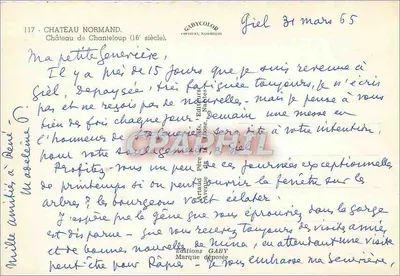 117 - CHATEAU NORMAND.
Château de Chanteloup (16e siècle).
GABYCOLOR
Giel 31 mars 65
Ma petite Geneviève,
Il y a près de 15 jours que je suis revenue à
Giel, Dépaysée, très fatiguée toujours, je n'écris
pas et ne reçois pas de nouvelles - mais je pense à vous
bien des fois chaque jour - Demain une messe en
l'honneur de sera dite à votre intention,
pour votre
Profitez-vous un peu de ces journées exceptionnelles
de printemps si on peut ouvrir la fenêtre sur les
arbres ? les bourgeons vont éclater.
J'espère que la gêne que vous éprouviez dans la gorge
est disparue - que vous recevez toujours des visites amies
et de bonnes nouvelles de en attendant une visite
peut-être pour Pâques - Je vous embrasse ma Geneviève,
Mille amitiés à René -
Madeleine G
CPARAMA.COM
Editions GABY
Marque déposée